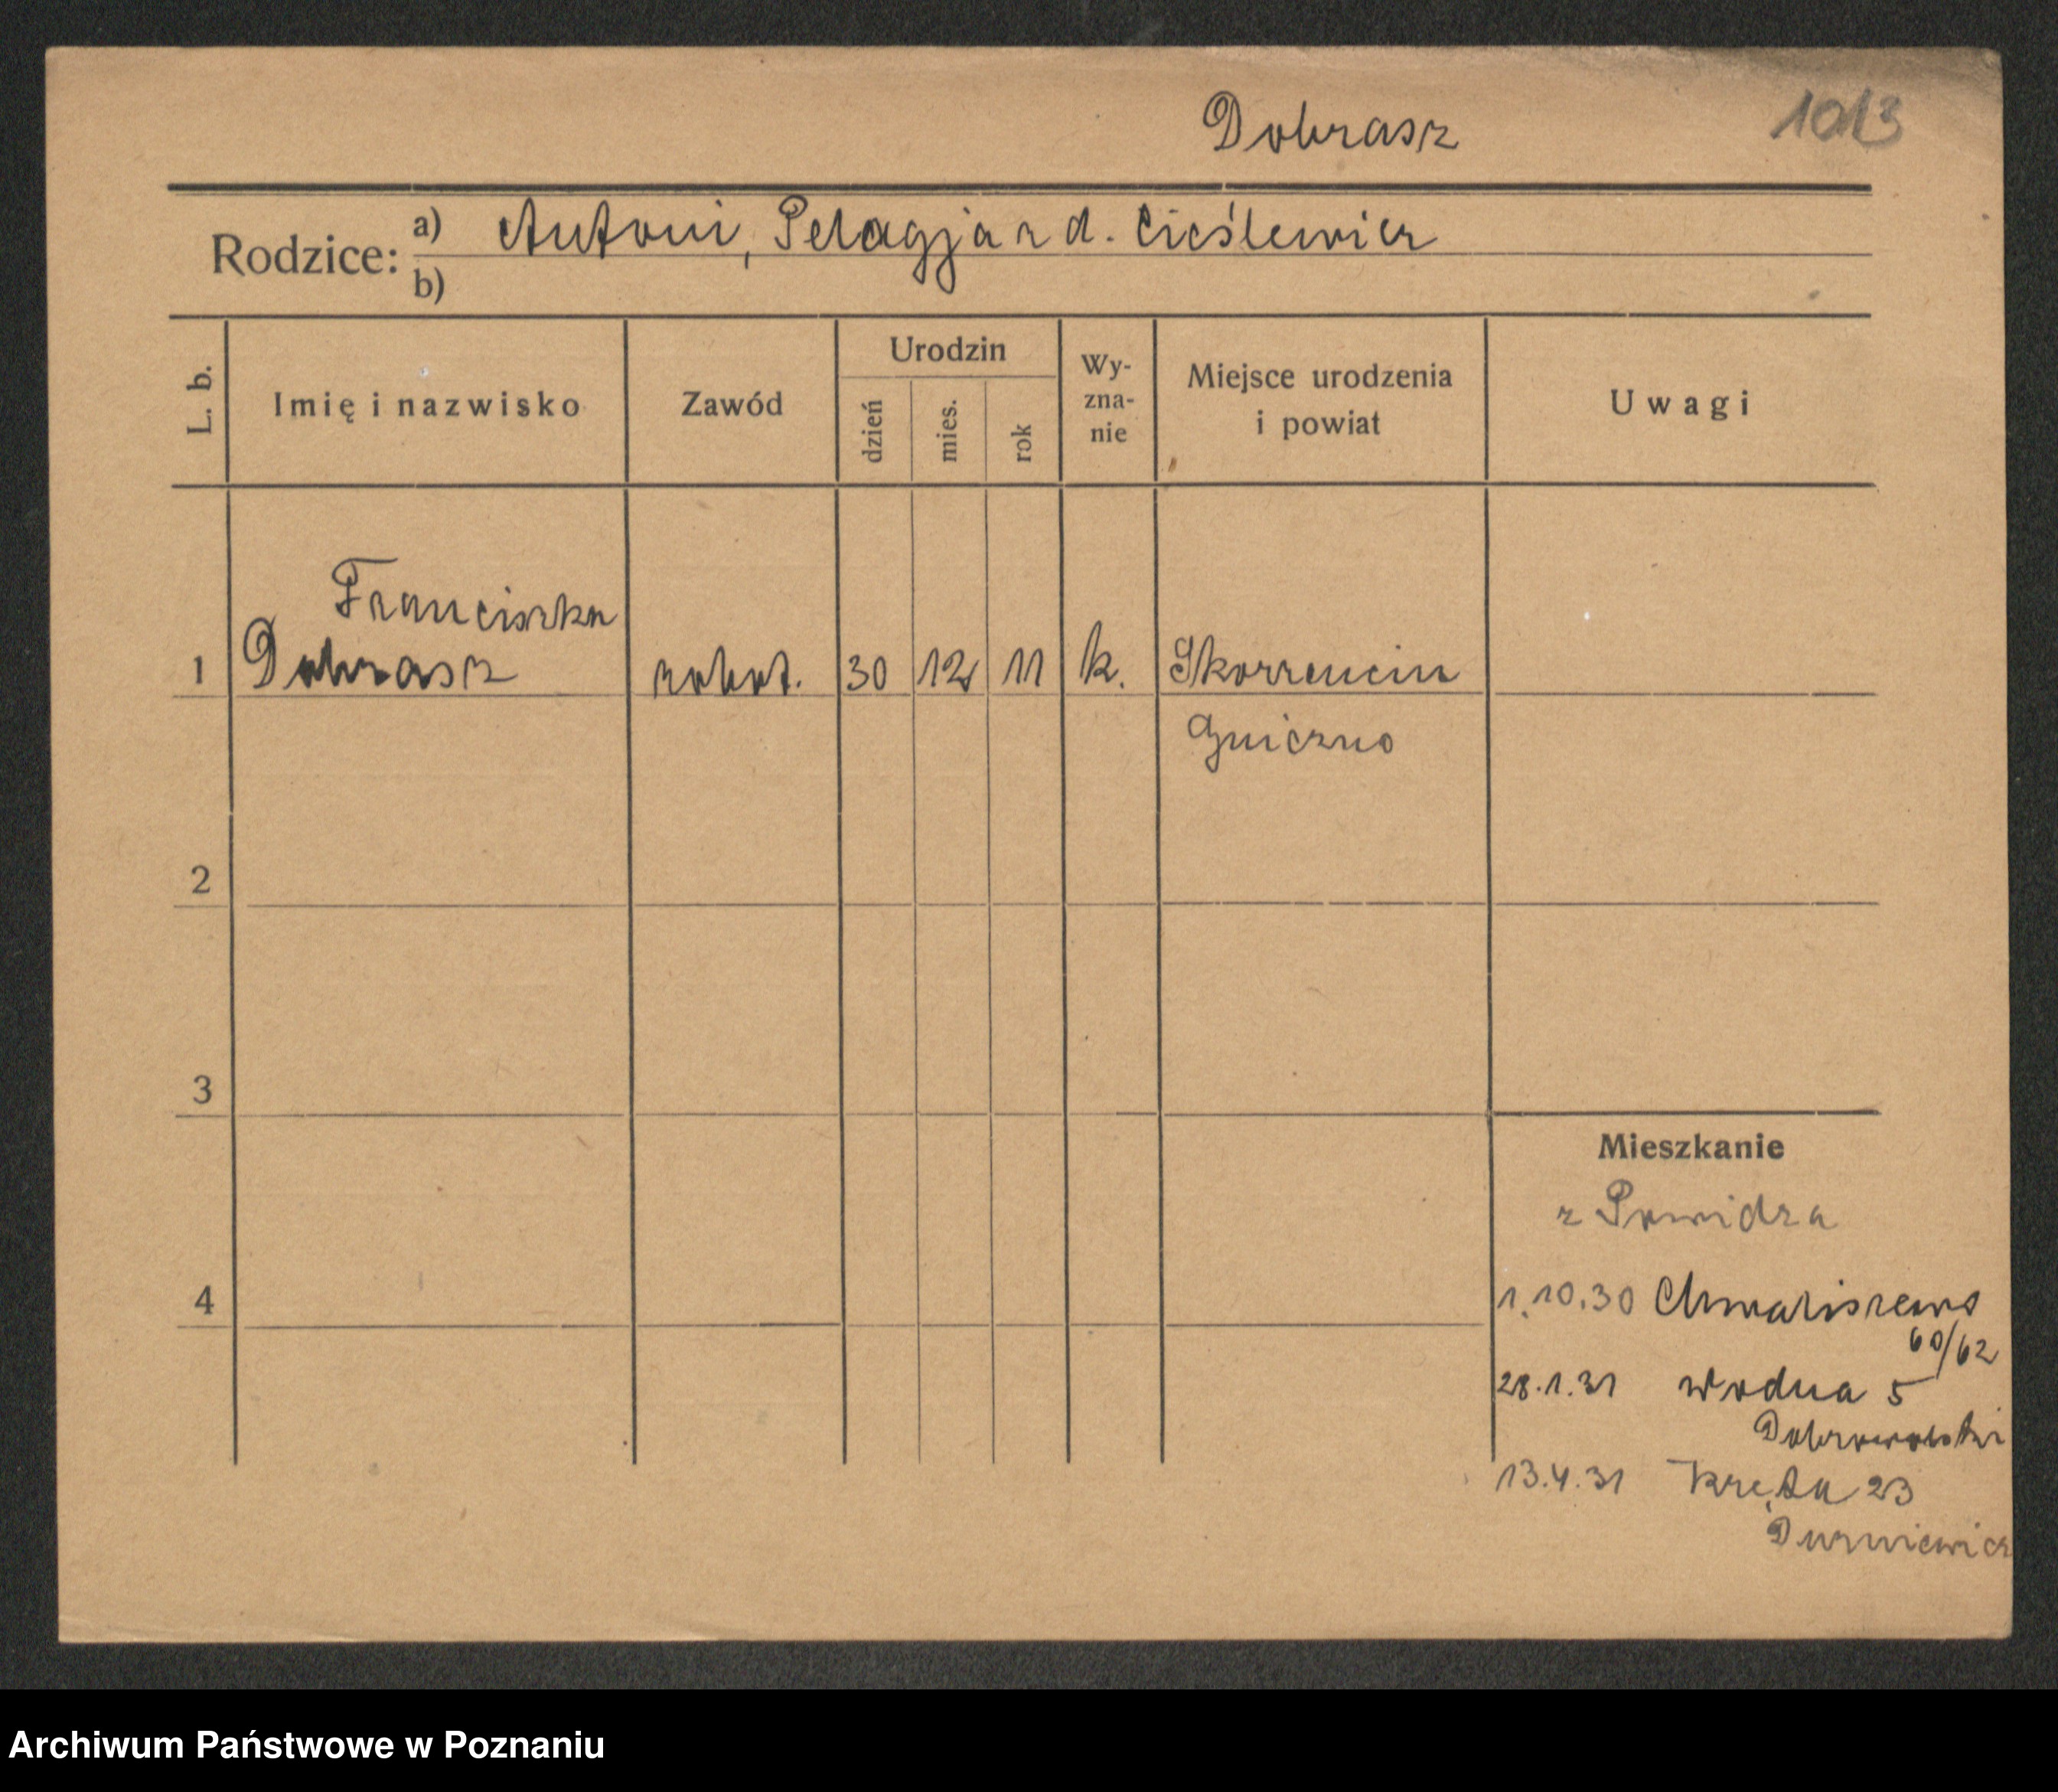 Dobrasz
1013
Rodzice: a) Antoni, Pelagja z d. Cieślewicz
b)
L. b.
Imię i nazwisko
Zawód
Urodzin
dzień
mies.
rok
Wy-
zna-
nie
Miejsce urodzenia
i powiat
Uwagi
Franciszka
1 Dobrasz robot. 30 12 11 k. Skorzencin
Gniezno
2
3
Mieszkanie
z Powidza
4
1.10.30 Chwaliszewo
60/62
28.1.31 Wodna 5
Dobrowolski
13.4.31 Kręta 23
Durniewicz
Archiwum Państwowe w Poznaniu